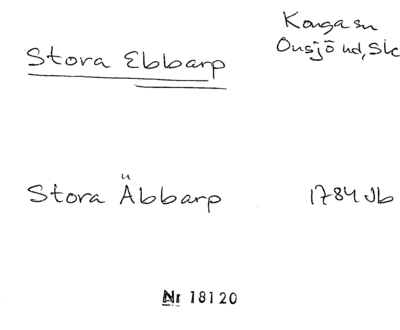 Konga sn
Stora Ebbarp
Onsjö hd, Sk
Stora Äbbarp 1784 Jb
Nr 18120